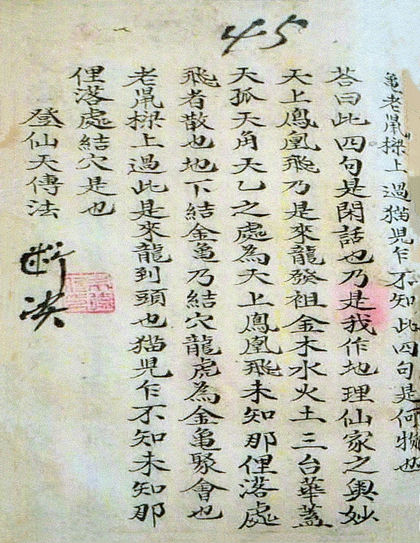 45
龜老鼡樑上過猫児乍不知此四句是何物也
荅曰此四句是閑話也乃是我作地理仙家之奥妙
天上鳳凰飛乃是來龍發祖金木水火土三台華蓋
天孤天角天乙之處為天上鳳凰飛未知那俚落處
飛者散也地下結金亀乃結穴龍虎為金亀聚會也
老鼡樑上過此是來龍到頭也猫児乍不知未知那
俚落處結穴是也
登仙天傳法
断决